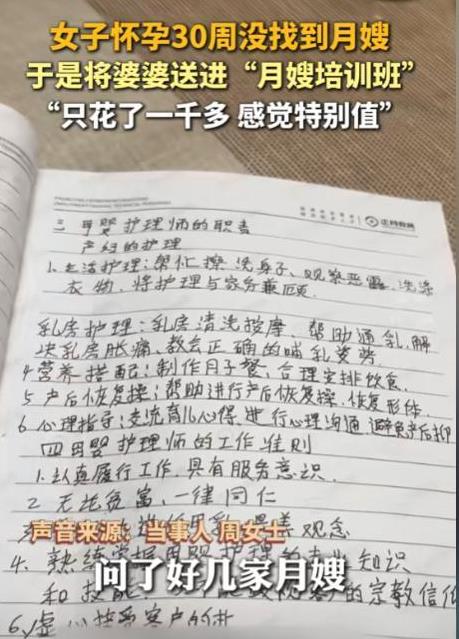 女子怀孕30周没找到月嫂
于是将婆婆送进“月嫂培训班”
“只花了一千多 感觉特别值”
三 母婴护理师的职责
产妇的护理
1.生活护理:帮忙擦洗身子、观察恶露、洗涤
衣物,将护理与家务兼顾
乳房护理:乳房清洗按摩、帮助通乳,解
决乳房胀痛,教会正确的哺乳姿势
4.营养搭配:制作月子餐、合理安排饮食.
5 产后恢复操:帮助进行产后恢复操.恢复形体.
6 心理指导:交流育儿心得 进行心理沟通.避免产后抑
四 母婴护理师的工作准则
1.认真履行工作,具有服务意识.
2 无论贫富,一律同仁
观念
声音来源:当事人 周女士
4. 熟练掌握母婴护理的专业知识
和技能
的宗教信仰
问了好几家月嫂
6.虚心接受客户的